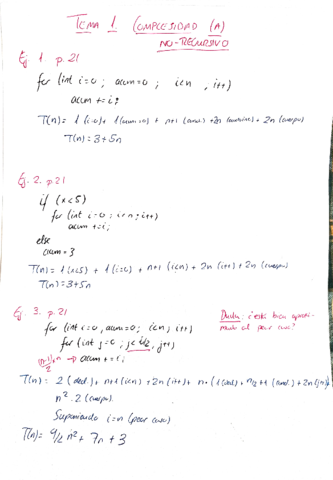 TEMA 1 COMPLEJIDAD (A)
NO-RECURSIVO
Ej 1. p.21
for (int i=0, acum=0 ; i<n , i++)
acum += i;
T(n)= 1 (i=0) + 1 (acum=0) + n+1 (cond.) + 2n + 2n (cuerpo)
T(n)= 3+5n
Ej. 2. p.21
if (x<5)
for (int i=0; i<n; i++)
acum += i;
else
acum = 3
T(n)= 1 (x<5) + 1 (i=0) + n+1 (i<n) + 2n (i++) + 2n (cuerpo)
T(n)= 3+5n
Ej. 3. p.21
for (int i=0, acum=0; i<n; i++)
for (int j=0; j< i/2, j++)
acum += i;
Duda: ¿está bien
al peor caso?
T(n)= 2 (decl.) + n+1 (i<n) + 2n (i++) + n· (1 (decl) + n/2 + 1 (cond.) + 2n (j++)
n² · 2 (cuerpo).
Suponiendo i=n (peor caso)
T(n)= 9/2 n² + 7n + 3